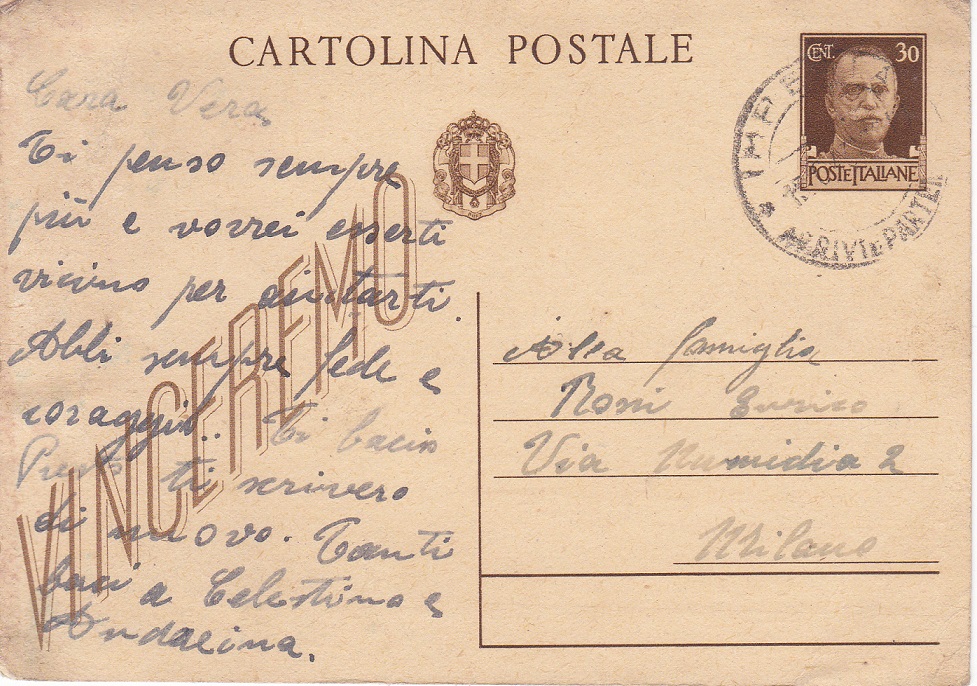 CARTOLINA POSTALE
CENT. 30
POSTE ITALIANE
IMPERIA
ARRIVI E PARTENZE
VINCEREMO
Cara Vera,
Ti penso sempre
più e vorrei esserti
vicino per aiutarti.
Abbi sempre fede e
coraggio.. Ti bacio
Presto ti scrivero
di nuovo. Tanti
baci a Celestina e
Andreina.
Alla famiglia
Roni Enrico
Via Numidia 2
Milano